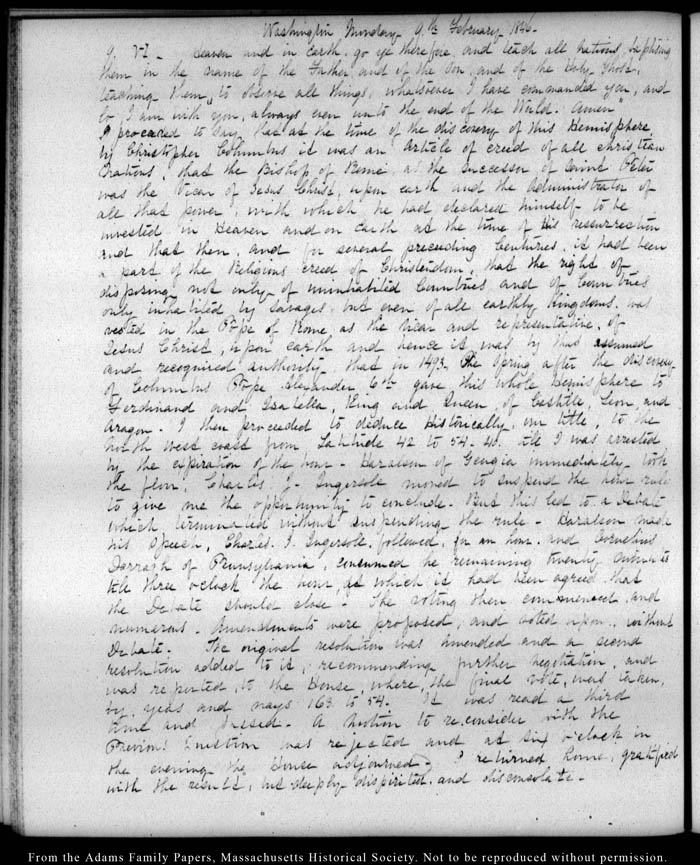 Washington Monday 9th February 1846.
9. VI. Heaven and in Earth. go ye therefore, and teach all Nations, baptising
them in the name of the Father, and of the Son, and of the Holy Ghost,
teaching them, to observe all things, whatsoever I have commanded you, and
lo I am with you, always even unto the end of the World. Amen"
I proceeded to say that at the time of the discovery of this Hemisphere
by Christopher Columbus it was an Article of creed of all christian
Nations, that the Bishop of Rome, as the successor of Saint Peter
was the Vicar of Jesus Christ, upon earth and the Administrator of
all that power, with which he had declared himself to be
invested in Heaven and on Earth at the time of His resurrection
and that then, and for several preceeding Centuries, it had been
a part of the Religious creed of Christendom, that the right of
disposing not only of uninhabited Countries and of Countries
only inhabited by savages but even of all earthly Kingdoms, was
vested in the Pope of Rome as the Vicar and representative, of
Jesus Christ, upon earth and hence it was by this assumed
and recognised authority that in 1493. the Spring after the discovery
of Columbus Pope Alexander 6th gave this whole Hemisphere to
Ferdinand and Isabella, King and Queen, of Castille, Leon, and
Aragon. I then proceeded to deduce Historically, our title, to the
North west coast from Latitude 42 to 54. 40. till I was arrested
by the expiration of the hour - Haralson of Georgia immediately took
the floor, Charles J. Ingersoll moved to suspend the hour rule
to give me the opportunity to conclude. But this led to a Debate
which terminated without suspending the rule - Haralson made
his speech, Charles. J. Ingersoll. followed, for an hour. and Cornelius
Darragh of Pennsylvania, consumed the remaining twenty minutes
till three o'clock the hour, at which it had been agreed that
the Debate should close - The voting then commenced and
numerous Amendments were proposed, and voted upon, without
Debate. The original resolution was amended and a second
resolution added to it, recommending further negotiation, and
was reported, to the House, where, the final vote, was taken,
by yeas and nays 163 to 54. It was read a third
time and passed - A motion to re,consider with the
Previous Question was rejected and at six o'clock in
the evening the House adjourned - I returned home, gratified
with the result, but deeply dispirited, and disconsolate -
From the Adams Family Papers, Massachusetts Historical Society. Not to be reproduced without permission.